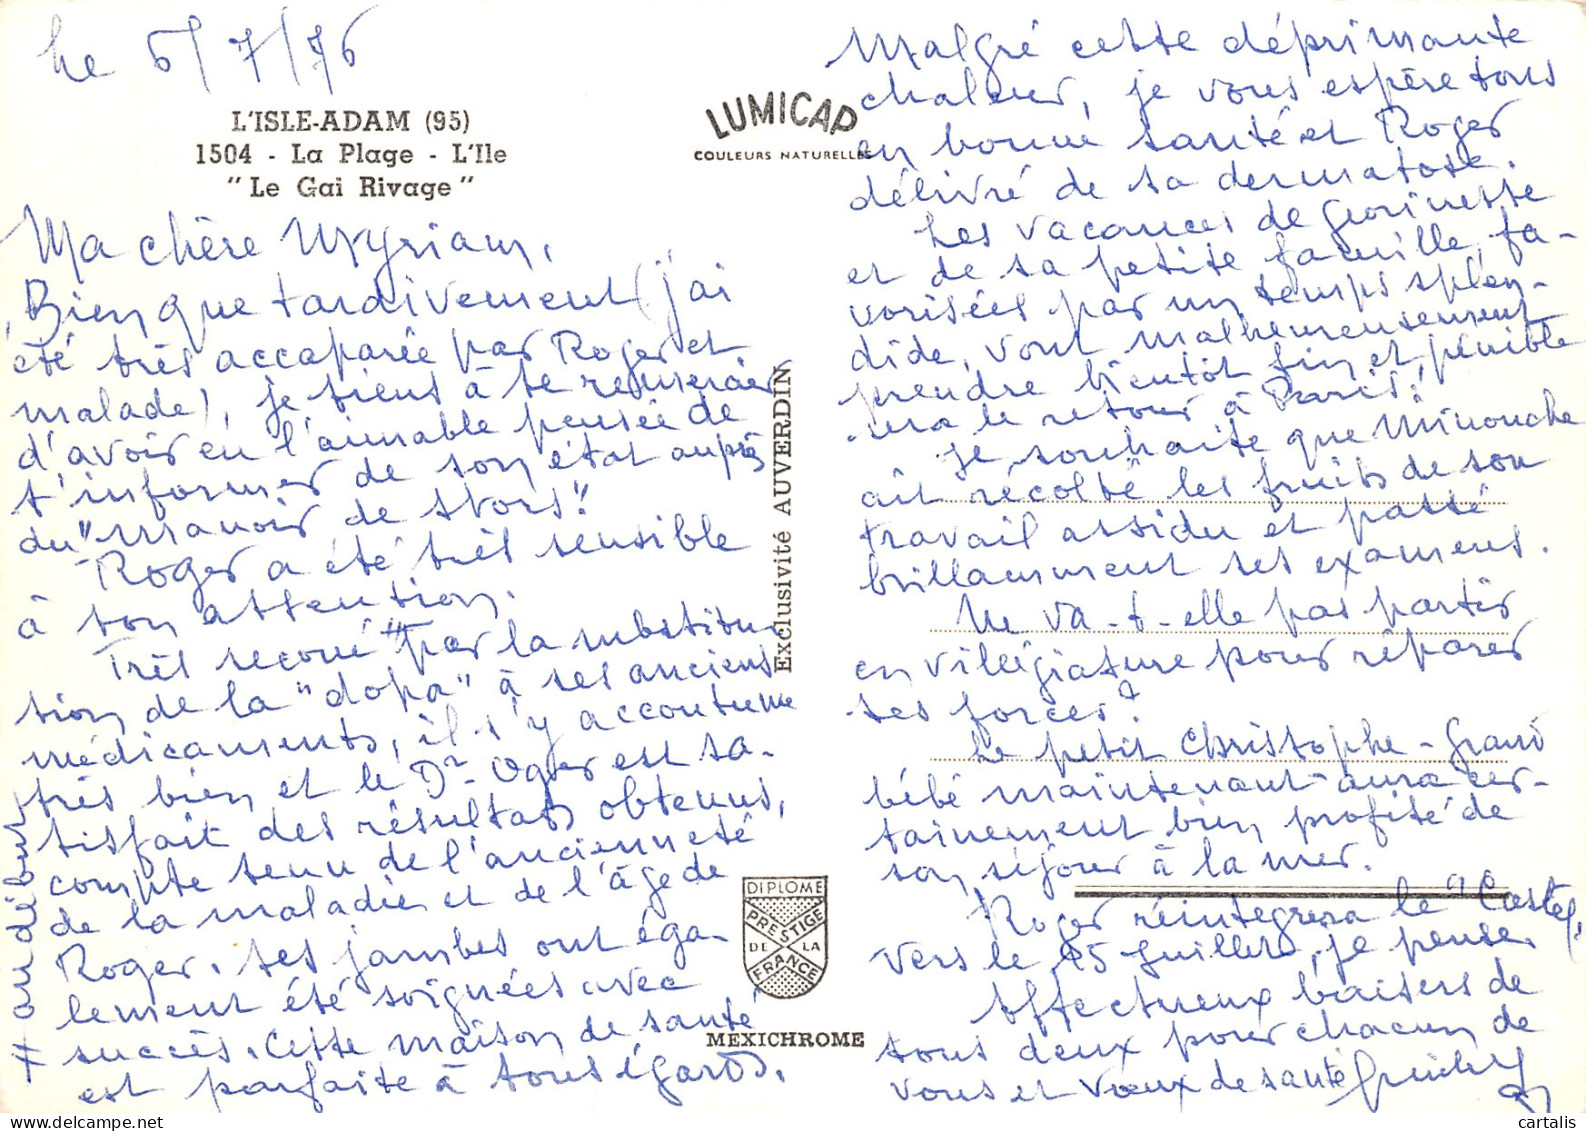 Le 5/7/76
L'ISLE-ADAM (95)
1504 - La Plage - L'Ile
"Le Gai Rivage"
Ma chère Myriam,
Bien que tardivement (j'ai
été très accaparée par Roger et
malade), je tiens à te remercier
d'avoir eu l'aimable pensée de
t'informer de son état auprès
du "Manoir de Stors".
Roger a été très sensible
à ton attention.
Très secoué # par la substitu-
tion de la "dopa" à ses anciens
médicaments, il s'y accoutume
très bien et le Dr Oger est sa-
tisfait des résultats obtenus,
compte tenu de l'ancienneté
de la maladie et de l'âge de
Roger. Ses jambes ont éga-
lement été soignées avec
succès. Cette maison de santé
est parfaite à tous égards.
# au début
LUMICAP
COULEURS NATURELLES
Exclusivité AUVERDIN
DIPLOME
PRESTIGE
DE LA
FRANCE
MEXICHROME
Malgré cette déprimante
chaleur, je vous espère tous
en bonne santé et Roger
délivré de sa dermatose.
Les vacances de
et de sa petite famille, fa-
vorisées par un temps splen-
dide, vont malheureusement
prendre bientôt fin et pénible
sera le retour à Paris.
Je souhaite que Minouche
ait récolté les fruits de son
travail assidu et passé
brillamment ses examens.
Ne va-t-elle pas partir
en villégiature pour réparer
ses forces?
Le petit Christophe - Grand
bébé maintenant - aura cer-
tainement bien profité de
son séjour à la mer.
Roger réintégrera le "Castel"
vers le 15 Juillet, je pense.
Affectueux baisers de
tous deux pour chacun de
vous et vœux de santé
cartalis